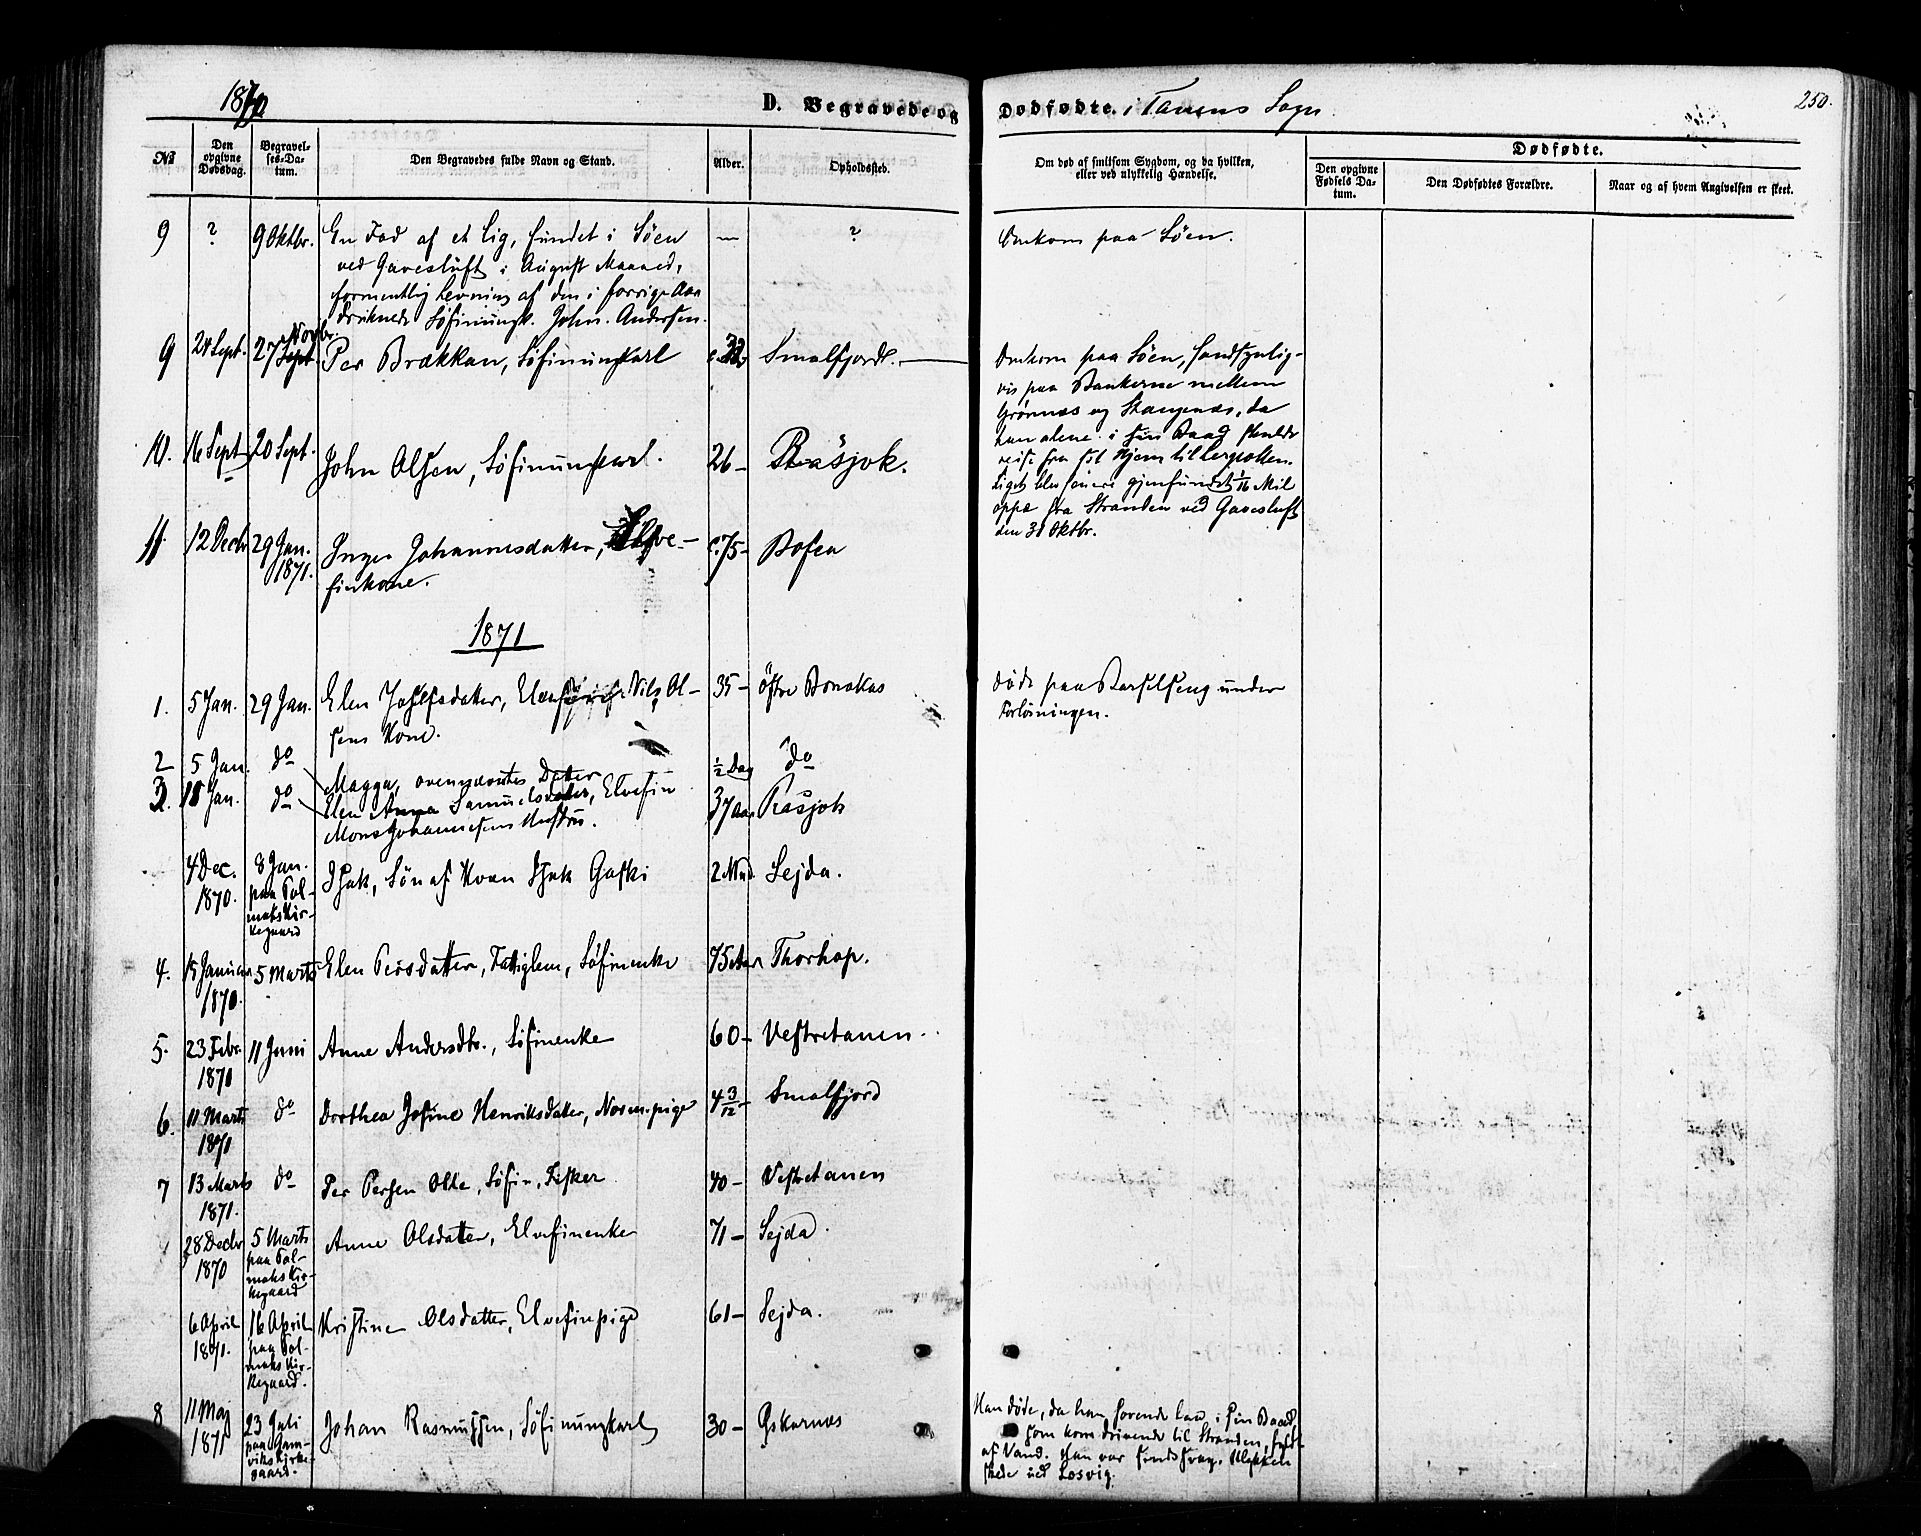 1870
D. Begravede og Dødfødte. i Tanens Sogn.
250.
No
Den opgivne Dødsdag.
Begravelses-Datum.
Den Begravedes fulde Navn og Stand.
Alder.
Opholdssted.
Om død af smitsom Sygdom, og da hvilken, eller ved ulykkelig Hændelse.
Dødfødte.
Den opgivne Fødsels Datum.
Den Dødfødtes Forældre.
Naar og af hvem Angivelsen er skeet.
9 ? 9 Oktbr. En Fod af et Lig, fundet i Søen — ? Omkom paa Søen.
ved Gavesluft i August Maaned,
formentlig Levning af den i forrige Aar
druknede Søfinungk. John. Andersen.
9 24 Sept. 27 Sept. Novbr. Per Brækkan, Søfinungkarl Smalfjord.
Omkom paa Søen, sandsynlig-
vis paa Bankerne mellem
Grønnæs og Stangenæs, da
han alene i sin Baad skulde
reise fra sit Hjem til
Liget blev senere gjenfundet 1/16 Mil
oppe fra Stranden ved Gavesluft
den 31 Oktbr.
10. 16 Sept. 20 Sept. John Olsen, Søfinungkarl. 26 — Rasjok.
11. 12 Decbr 29 Jan. 1871. Inger Johannesdatter, Elve-
finkone. c. 75 — Bofea
1871
1. 5 Jan. 29 Jan. Elen Josefsdatter, Nils Ol-
sens Kone. 35 — østre Bonakas
døde paa Barselseng under
Forløsningen.
2 5 Jan. do Magga, ovennævntes Datter 1/2 Dag do
3. 18 Jan. do Elen Samuelsdatter, Elvefin
Mons Johannesens Hustru. 37 Aar Rasjok
4 Dec. 1870. 8 Jan. paa Pol-
maks Kir-
kegaard
Isak, Søn af Kvæn Isak Gaski 2 Mnd. Sejda.
4. 15 Januar 1870. 5 Marts Elen Persdatter, Fattiglem, Søfinenke 75 Aar Thorhop.
5. 23 Febr. 1870 11 Juni Anne Andersdtr., Søfinenke 60 — Vestretanen.
6. 11 Marts 1871 do Dorthea Josine Henriksdatter, Norm. pige 4 3/12 — Smalfjord
7 13 Marts 1871. do Per Persen Olle, Søfin, Fisker 40 — Vestretanen
28 Decbr 1870 5 Marts
paa Pol-
maks Kir-
kegaard
Anne Olsdatter, Elvefinenke 71 — Sejda.
6 April 1871. 16 April
paa Pol-
maks Kir-
kegaard.
Kristine Olsdatter, Elvefinpige 61 — Sejda.
8 11 Maj 1871 23 Juli
paa Gam-
viks Kirke-
gaard.
Johan Rasmussen, Søfinungkarl 30 — Oskarnæs
Han døde, da han sovende laa i sin Baad,
som kom drivende til Stranden, fyldt
af Vand. Han var sindssvag. Ulykken
skede ved Losvig.